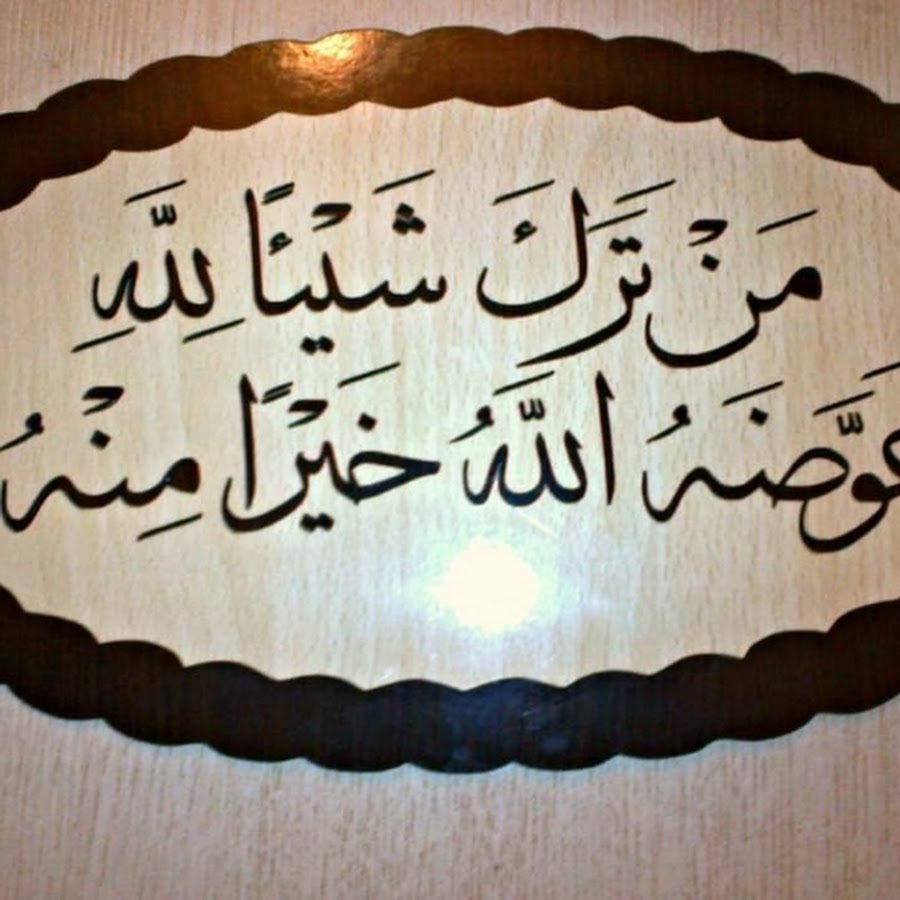 مَنْ تَرَكَ شَيْئًا لِلَّهِ
عَوَّضَهُ اللَّهُ خَيْرًا مِنْهُ